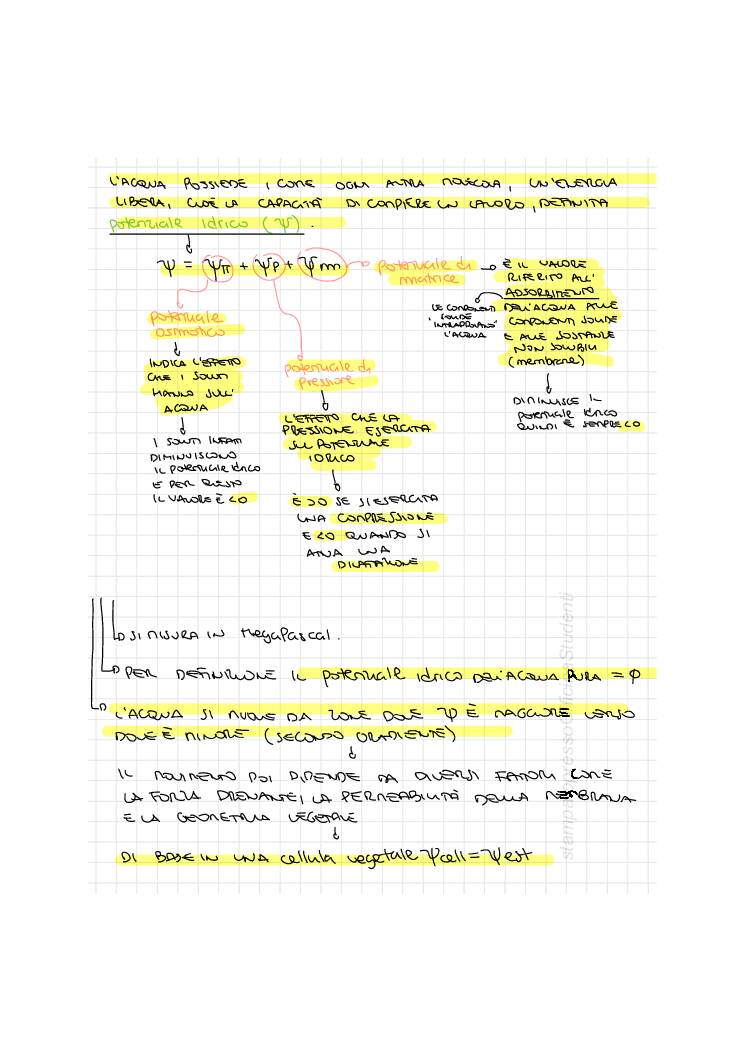 L'ACQUA POSSIEDE, COME OGNI ALTRA MOLECOLA, UN'ENERGIA
LIBERA, CIOÈ LA CAPACITÀ DI COMPIERE UN LAVORO, DEFINITA
potenziale idrico (Ψ).
Ψ = Ψπ + Ψp + Ψm
potenziale di
matrice
È IL VALORE
RIFERITO ALL'
ADSORBIMENTO
DELL'ACQUA ALLE
COMPONENTI SOLIDE
E ALLE SOSTANZE
NON SOLUBILI
(membrane)
LE COMPONENTI
SOLIDE
INTRAPPOLANO
L'ACQUA
DIMINUISCE IL
potenziale idrico
QUINDI È SEMPRE <0
potenziale
osmotico
INDICA L'EFFETTO
CHE I SOLUTI
HANNO SULL'
ACQUA
I SOLUTI INFATTI
DIMINUISCONO
IL potenziale idrico
E PER QUESTO
IL VALORE È <0
potenziale di
pressione
L'EFFETTO CHE LA
PRESSIONE ESERCITA
SUL POTENZIALE
IDRICO
È >0 SE SI ESERCITA
UNA COMPRESSIONE
E <0 QUANDO SI
ATTUA UNA
DILATAZIONE
SI MISURA IN MegaPascal.
PER DEFINIZIONE IL potenziale idrico DELL'ACQUA PURA = 0
L'ACQUA SI MUOVE DA ZONE DOVE Ψ È MAGGIORE VERSO
DOVE È MINORE (SECONDO GRADIENTE)
IL MOVIMENTO POI DIPENDE DA DIVERSI FATTORI COME
LA FORZA DRENANTE, LA PERMEABILITÀ DELLA MEMBRANA
E LA GEOMETRIA VEGETALE
DI BASE IN UNA cellula vegetale Ψcell = Ψest